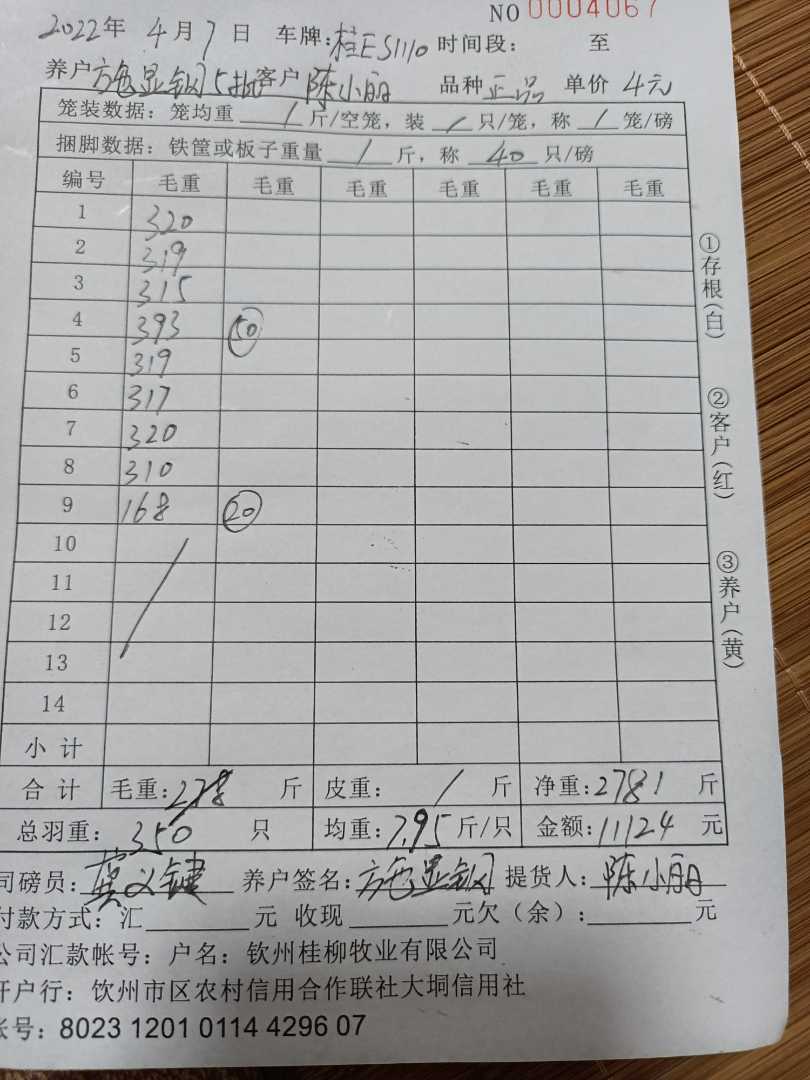 NO 0004067
2022年 4月 7日 车牌:桂ES1110 时间段: 至
养户 方显钢 5批 客户 陈小丽 品种 正品 单价 4元
笼装数据: 笼均重 / 斤/空笼, 装 / 只/笼, 称 / 笼/磅
捆脚数据: 铁筐或板子重量 / 斤, 称 40 只/磅
编号 毛重 毛重 毛重 毛重 毛重 毛重
1 320
2 319
3 315
4 393 50
5 319
6 317
7 320
8 310
9 168 20
10
11
12
13
14
小计
合计 毛重: 斤 皮重: / 斤 净重:2781 斤
总羽重: 350 只 均重:7.95 斤/只 金额:11124 元
司磅员: 养户签名: 提货人:陈小丽
付款方式: 汇 元 收现 元欠(余): 元
公司汇款帐号: 户名: 钦州桂柳牧业有限公司
开户行: 饮州市区农村信用合作联社大垌信用社
账号: 8023 1201 0114 4296 07
①存根(白)
②客户(红)
③养户(黄)